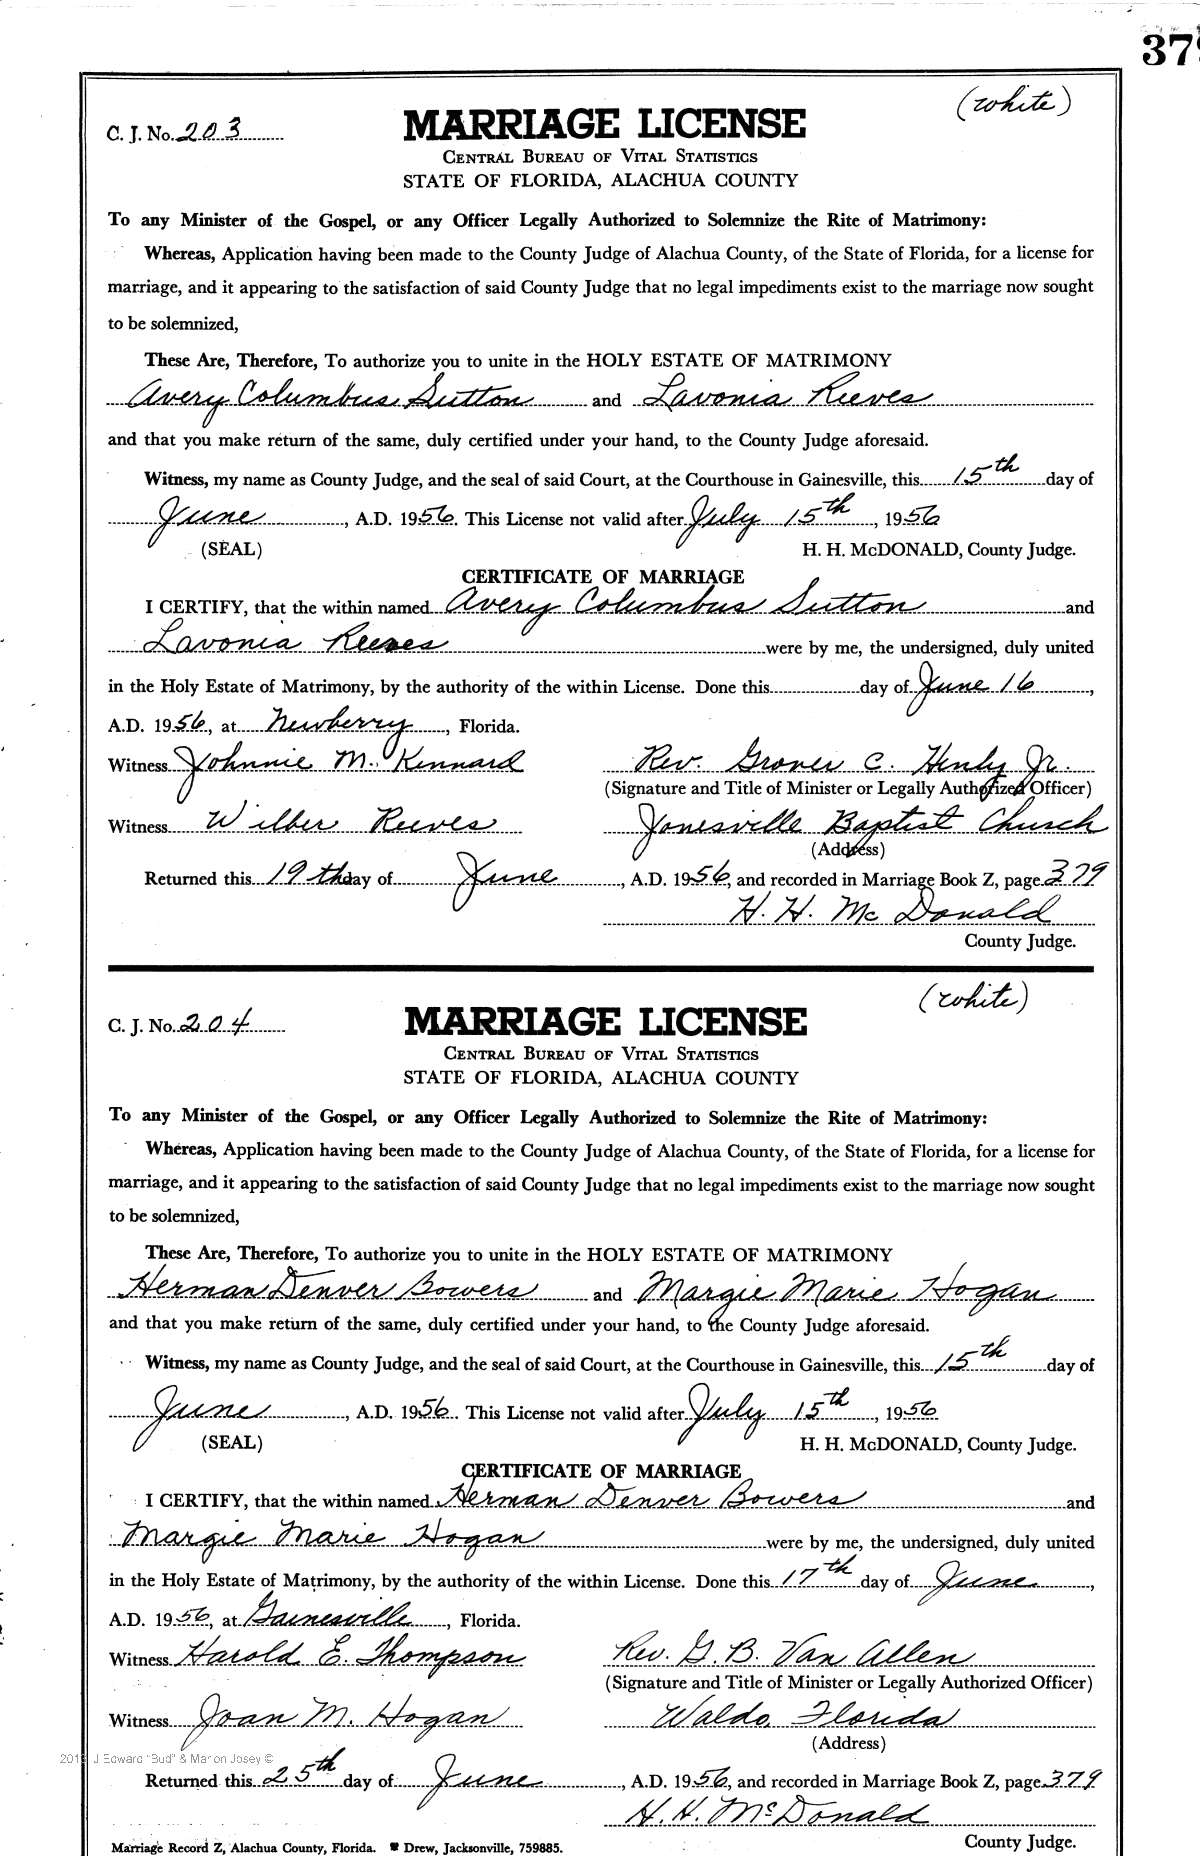 379
(white)
C. J. No. 203
MARRIAGE LICENSE
CENTRAL BUREAU OF VITAL STATISTICS
STATE OF FLORIDA, ALACHUA COUNTY
To any Minister of the Gospel, or any Officer Legally Authorized to Solemnize the Rite of Matrimony:
Whereas, Application having been made to the County Judge of Alachua County, of the State of Florida, for a license for
marriage, and it appearing to the satisfaction of said County Judge that no legal impediments exist to the marriage now sought
to be solemnized,
These Are, Therefore, To authorize you to unite in the HOLY ESTATE OF MATRIMONY
Avery Columbus Sutton and Lavonia Reeves
and that you make return of the same, duly certified under your hand, to the County Judge aforesaid.
Witness, my name as County Judge, and the seal of said Court, at the Courthouse in Gainesville, this 15th day of
June, A.D. 1956. This License not valid after July 15th, 1956
(SEAL) H. H. McDONALD, County Judge.
CERTIFICATE OF MARRIAGE
I CERTIFY, that the within named Avery Columbus Sutton and
Lavonia Reeves were by me, the undersigned, duly united
in the Holy Estate of Matrimony, by the authority of the within License. Done this day of June 16,
A.D. 1956, at Newberry, Florida.
Witness Johnnie M. Kennard Rev. Grover C. Henly Jr.
(Signature and Title of Minister or Legally Authorized Officer)
Witness Wilber Reeves Jonesville Baptist Church
(Address)
Returned this 19th day of June, A.D. 1956, and recorded in Marriage Book Z, page 379
H. H. McDonald
County Judge.
(white)
C. J. No. 204
MARRIAGE LICENSE
CENTRAL BUREAU OF VITAL STATISTICS
STATE OF FLORIDA, ALACHUA COUNTY
To any Minister of the Gospel, or any Officer Legally Authorized to Solemnize the Rite of Matrimony:
Whereas, Application having been made to the County Judge of Alachua County, of the State of Florida, for a license for
marriage, and it appearing to the satisfaction of said County Judge that no legal impediments exist to the marriage now sought
to be solemnized,
These Are, Therefore, To authorize you to unite in the HOLY ESTATE OF MATRIMONY
Herman Denver Bowers and Margie Marie Hogan
and that you make return of the same, duly certified under your hand, to the County Judge aforesaid.
Witness, my name as County Judge, and the seal of said Court, at the Courthouse in Gainesville, this 15th day of
June, A.D. 1956. This License not valid after July 15th, 1956
(SEAL) H. H. McDONALD, County Judge.
CERTIFICATE OF MARRIAGE
I CERTIFY, that the within named Herman Denver Bowers and
Margie Marie Hogan were by me, the undersigned, duly united
in the Holy Estate of Matrimony, by the authority of the within License. Done this 17th day of June,
A.D. 1956, at Gainesville, Florida.
Witness Harold E. Thompson Rev. G. B. Van Allen
(Signature and Title of Minister or Legally Authorized Officer)
Witness Joan M. Hogan Waldo, Florida
(Address)
J Edward "Bud" & Marion Josey ©
Returned this 25th day of June, A.D. 1956, and recorded in Marriage Book Z, page 379
H. H. McDonald
County Judge.
Marriage Record Z, Alachua County, Florida. Drew, Jacksonville, 759885.